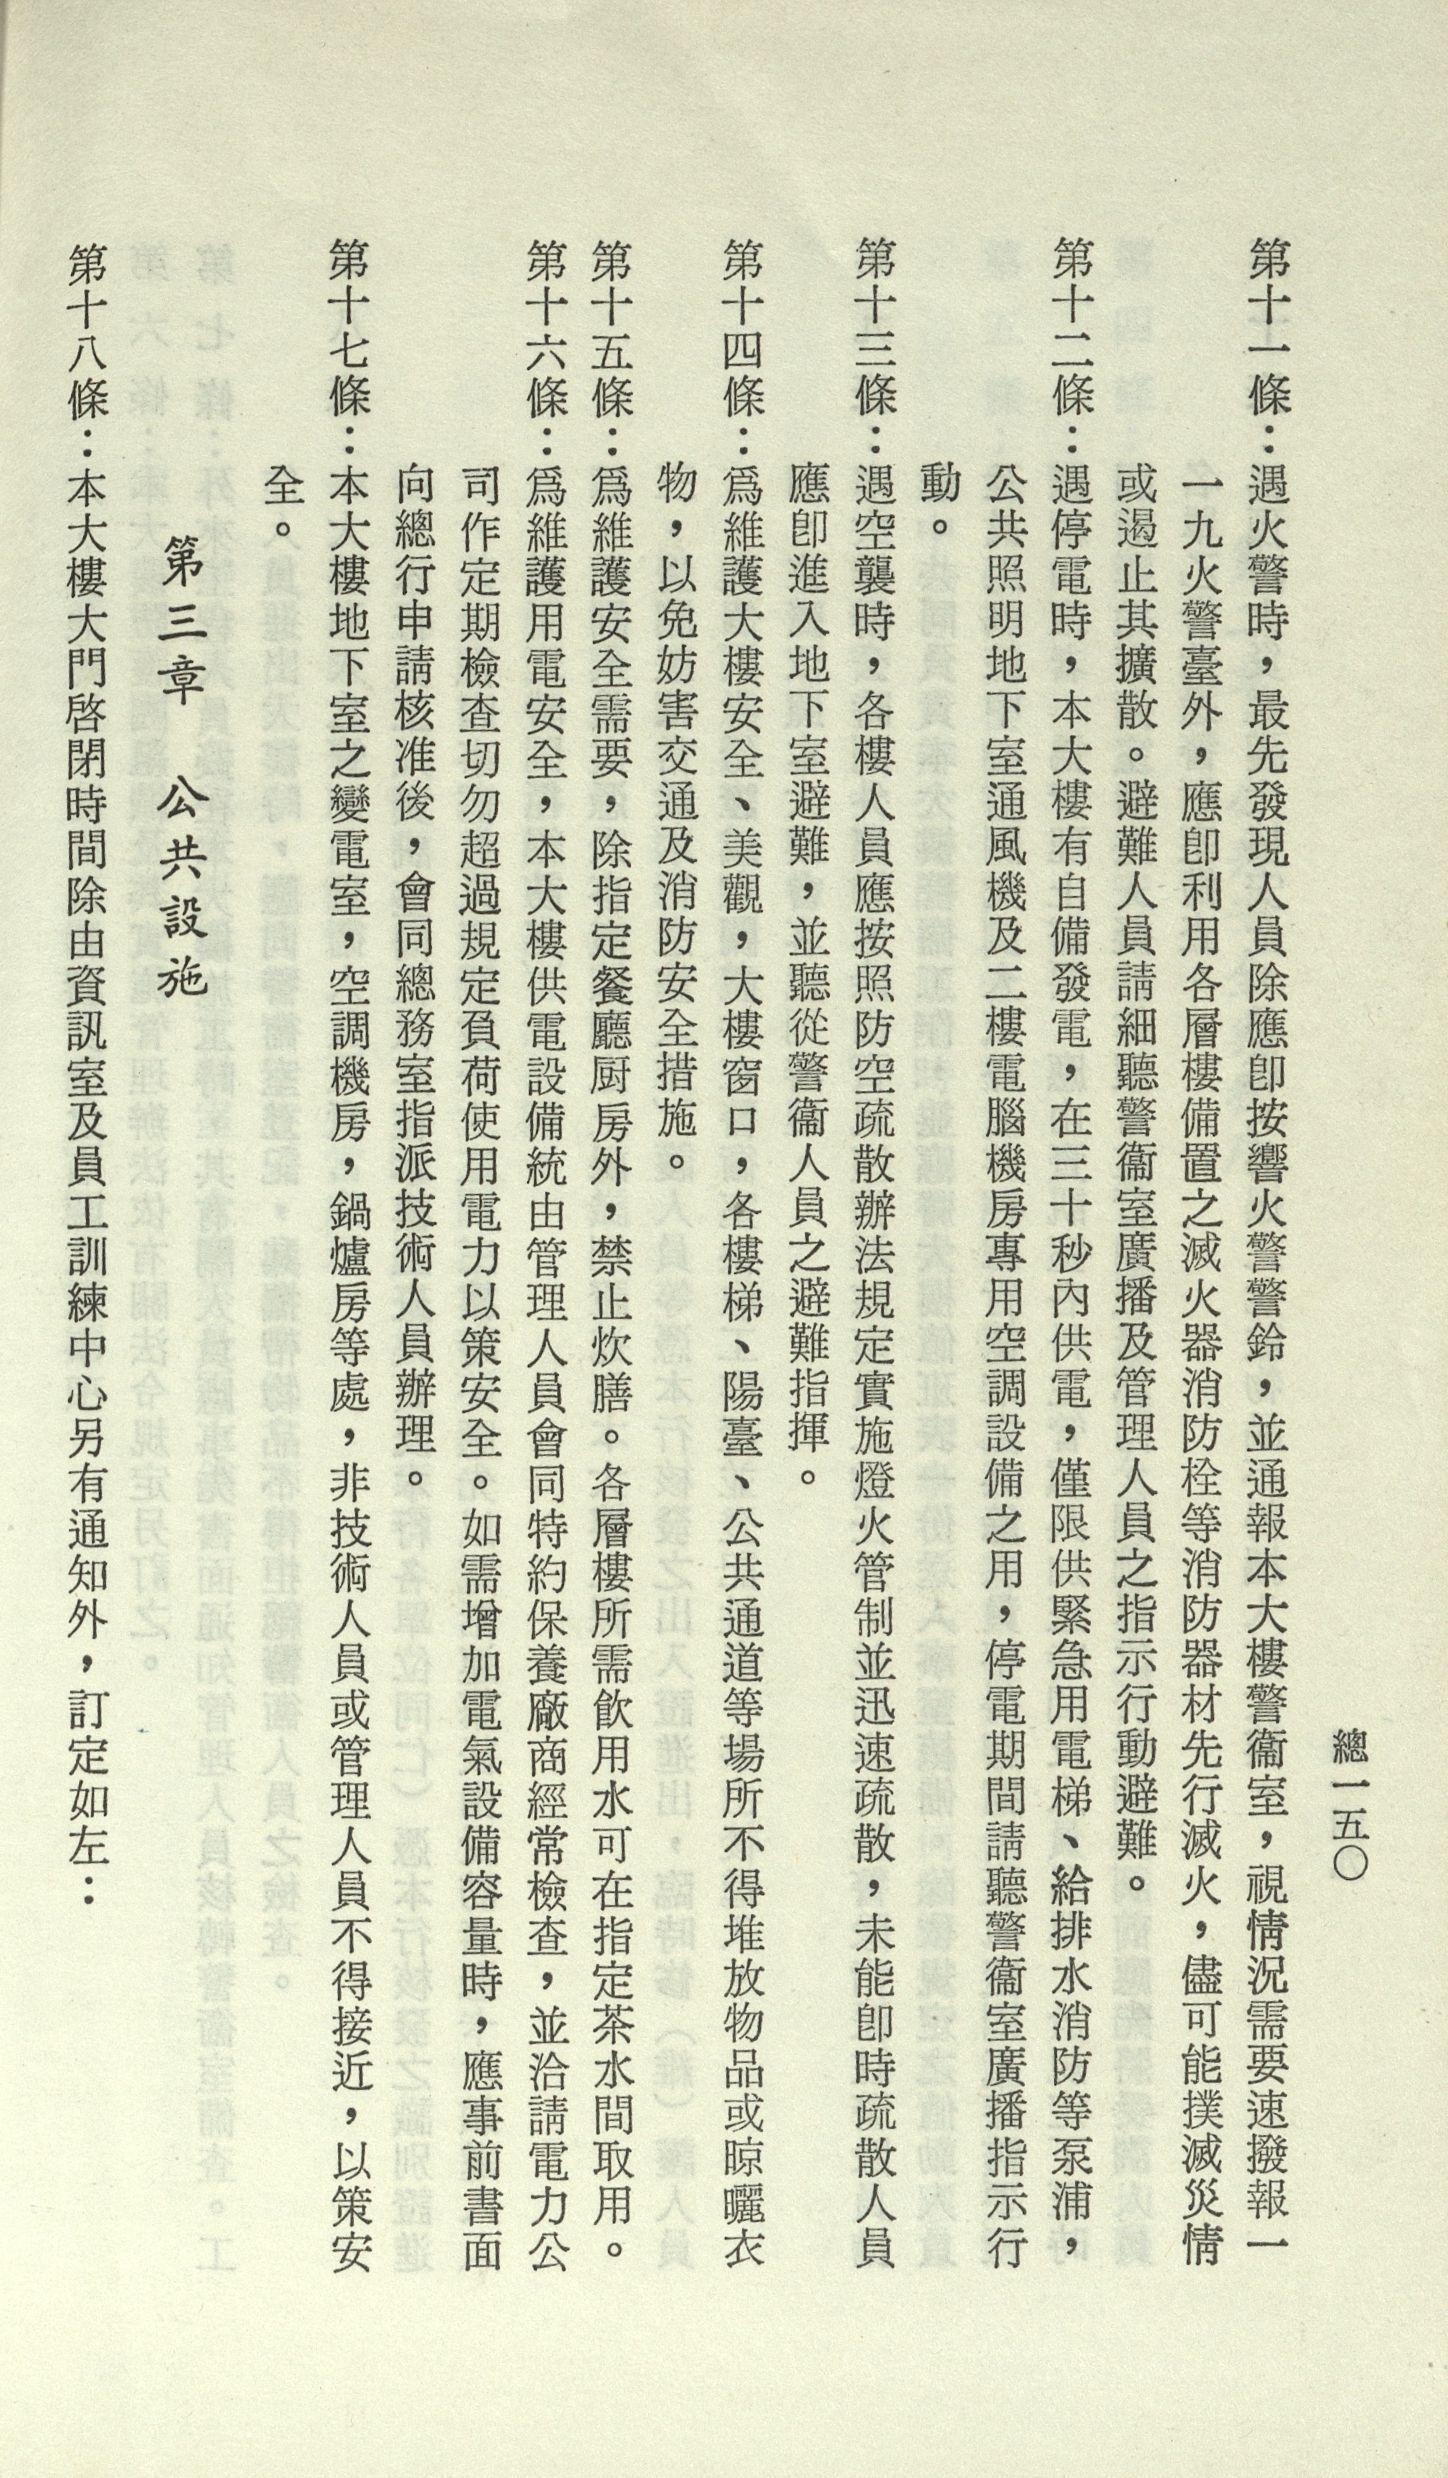 總一五〇
第十一條：遇火警時，最先發現人員除應卽按響火警警鈴，並通報本大樓警衞室，視情況需要速撥報一
一九火警臺外，應卽利用各層樓備置之滅火器消防栓等消防器材先行滅火，儘可能撲滅災情
或遏止其擴散。避難人員請細聽警衞室廣播及管理人員之指示行動避難。
第十二條：遇停電時，本大樓有自備發電，在三十秒內供電，僅限供緊急用電梯、給排水消防等泵浦，
公共照明地下室通風機及二樓電腦機房專用空調設備之用，停電期間請聽警衞室廣播指示行
動。
第十三條：遇空襲時，各樓人員應按照防空疏散辦法規定實施燈火管制並迅速疏散，未能卽時疏散人員
應卽進入地下室避難，並聽從警衞人員之避難指揮。
第十四條：爲維護大樓安全、美觀，大樓窗口，各樓梯、陽臺、公共通道等場所不得堆放物品或晾曬衣
物，以免妨害交通及消防安全措施。
第十五條：爲維護安全需要，除指定餐廳厨房外，禁止炊膳。各層樓所需飮用水可在指定茶水間取用。
第十六條：爲維護用電安全，本大樓供電設備統由管理人員會同特約保養廠商經常檢查，並洽請電力公
司作定期檢查切勿超過規定負荷使用電力以策安全。如需增加電氣設備容量時，應事前書面
向總行申請核准後，會同總務室指派技術人員辦理。
第十七條：本大樓地下室之變電室，空調機房，鍋爐房等處，非技術人員或管理人員不得接近，以策安
全。
第三章　公共設施
第十八條：本大樓大門啓閉時間除由資訊室及員工訓練中心另有通知外，訂定如左：